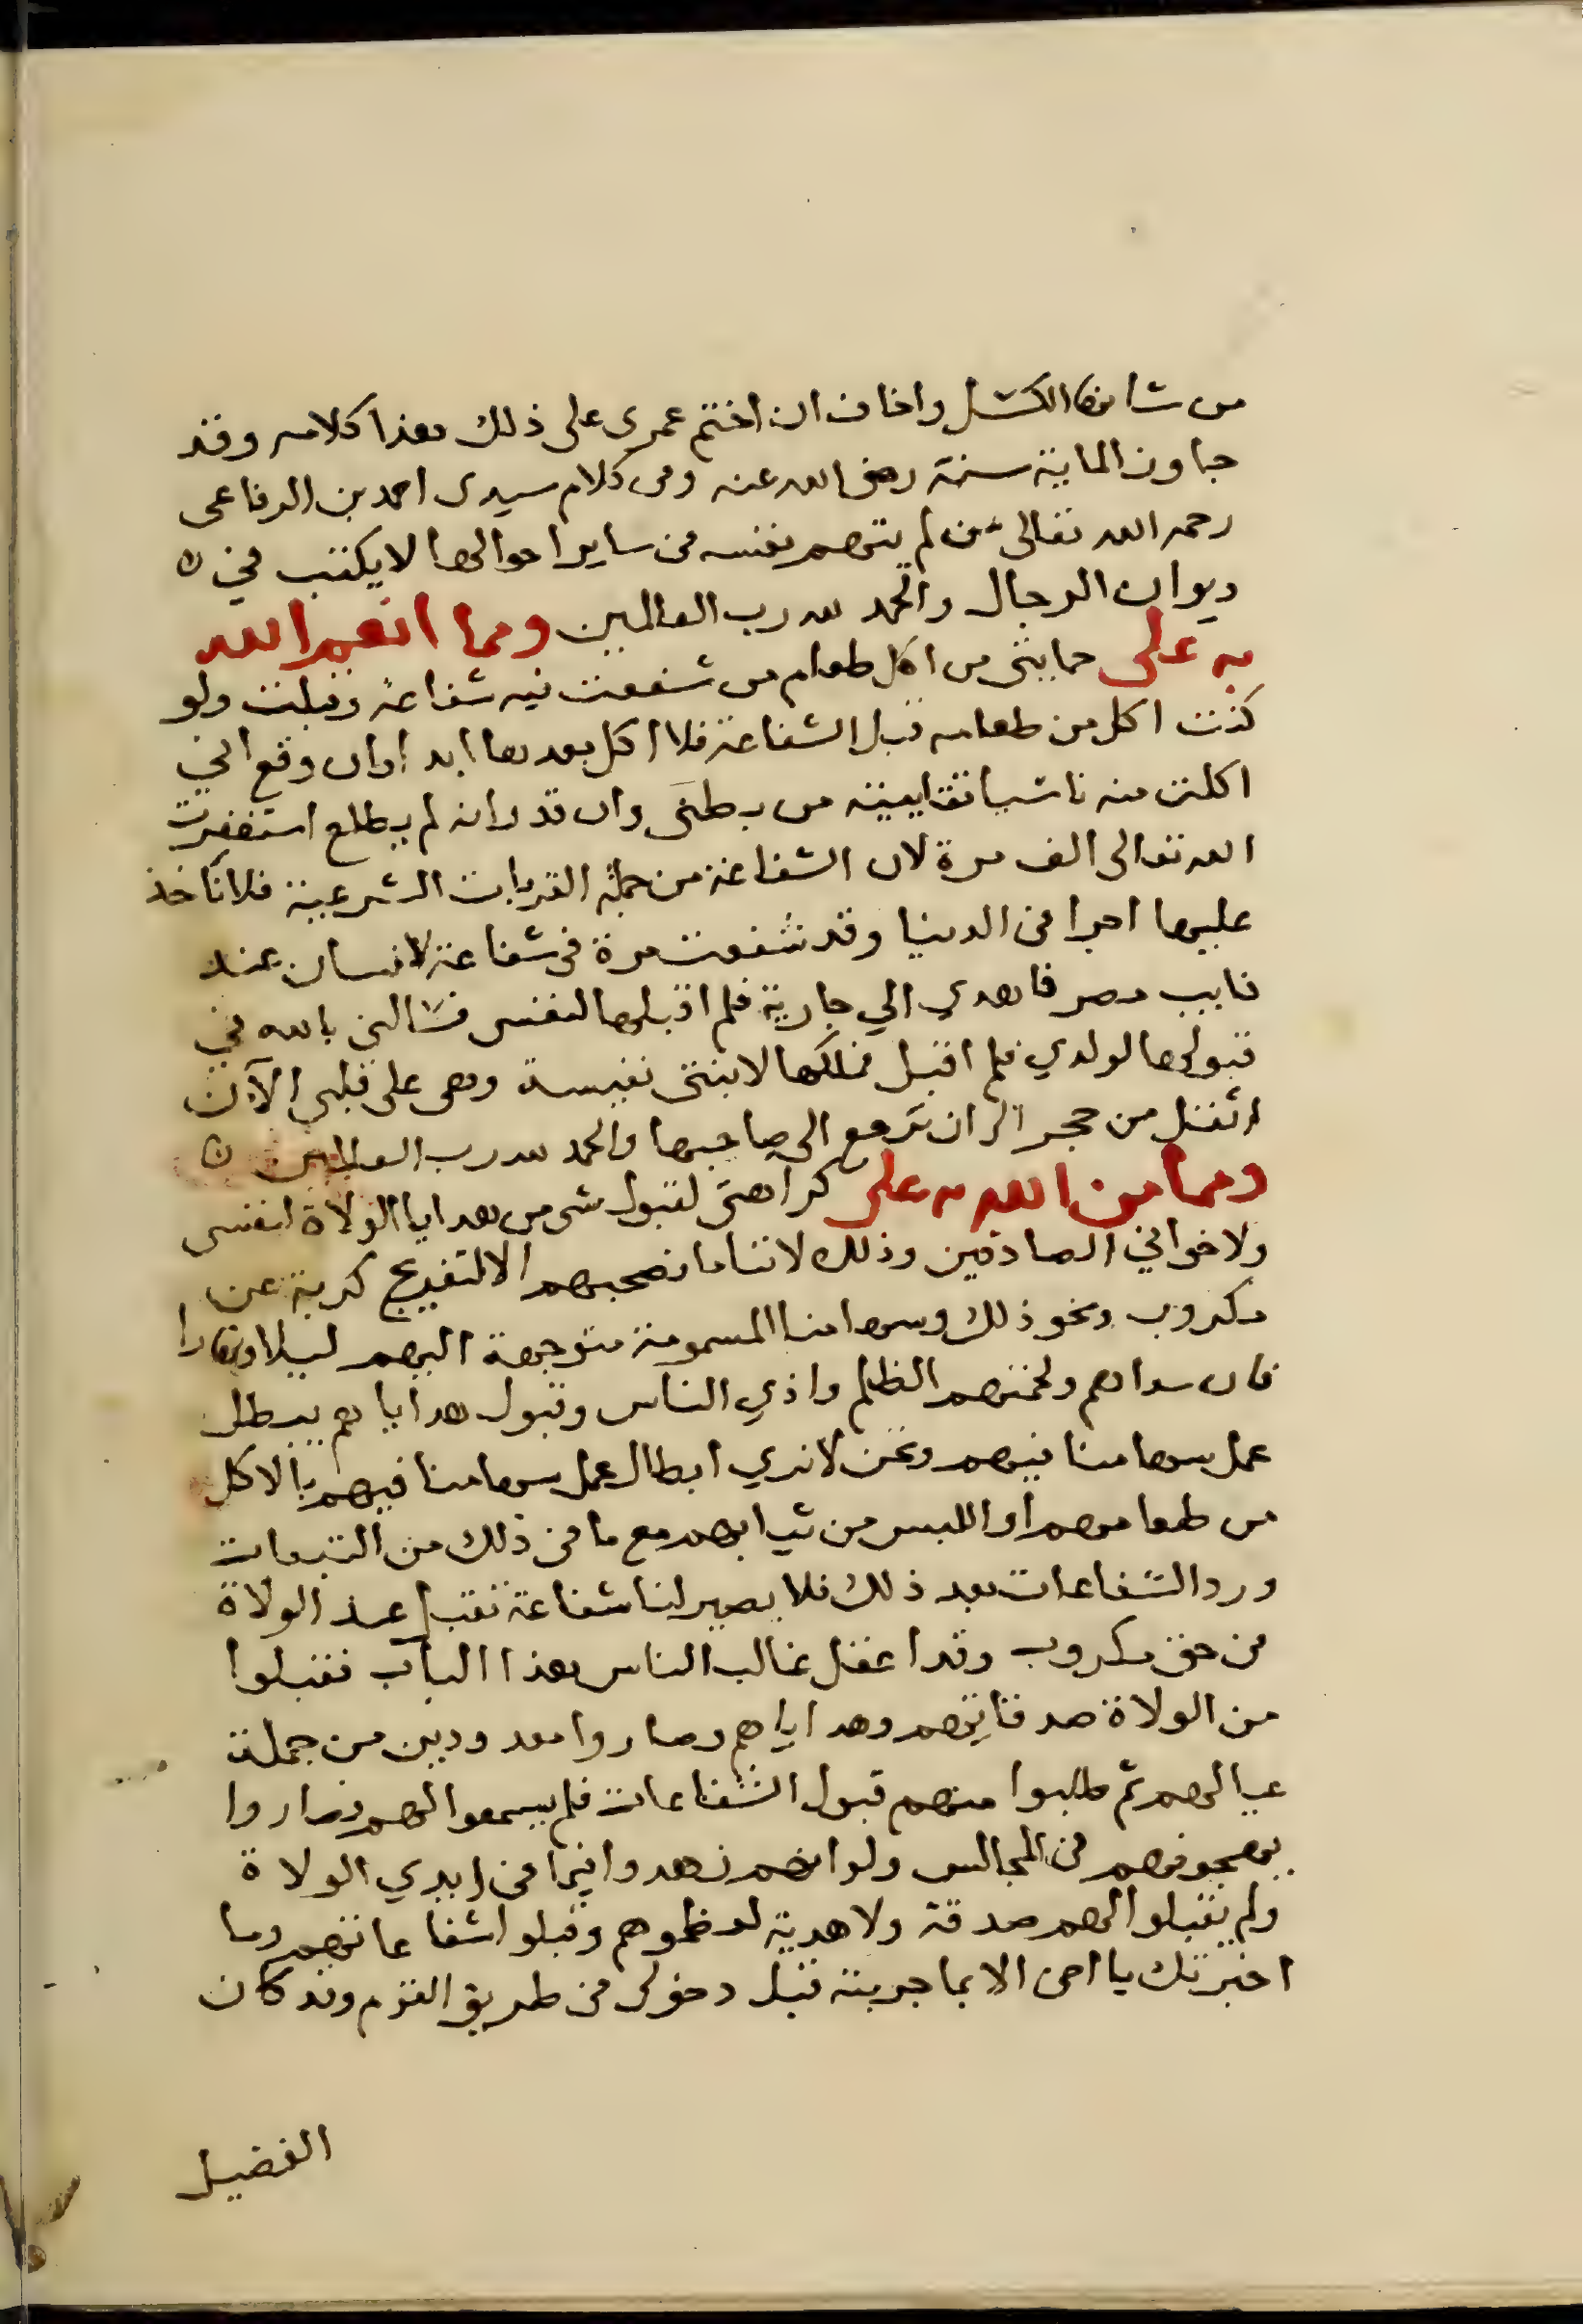 من شانها الكسل واخاف ان اختم عمرى على ذلك هذا كلامه وقد
جاوز الماية سنة رضى الله عنه ومن كلام سيدى احمد بن الرفاعى
رحمه الله تعالى من لم يتهم نفسه فى ساير احوالها لا يكتب في
ديوان الرجال والحمد لله رب العالمين ومما انعم الله
به على حمايتى من اكل طعام من شفعت فيه شفاعة وقبلت ولو
كنت اكل من طعامه قبل الشفاعة فلا اكل بعدها ابدا وان وقع اني
اكلت منه ناسيا تقاييته من بطنى وان قدر انه لم يطلع استغفرت
الله تعالى الف مرة لان الشفاعة من جملة القربات الشرعية فلا ناخذ
عليها اجرا فى الدنيا وقد شفعت مرة فى شفاعة لانسان عند
نايب مصر فاهدي الي جارية فلم اقبلها لنفسى فسالنى بالله في
قبولها لولدي فلم اقبل فملكها لابنتى نفيسة وهى على قلبى الآن
اثقل من حجر الى ان ترجع الى صاحبها والحمد لله رب العالمين
ومما من الله به على كراهتى لقبول شى من هدايا الولاة لنفسى
ولاخواني الصادقين وذلك لاننا ما نصحبهم الا لتفريج كربة عن
مكروب ونحو ذلك وسهامنا المسمومة متوجهة اليهم ليلا ونهارا
فان سداهم ولحمتهم الظلم واذي الناس وقبول هداياهم يبطل
عمل سهامنا فيهم ونحن لا نري ابطال عمل سهامنا فيهم بالاكل
من طعامهم او اللبس من ثيابهم مع ما فى ذلك من التبعات
ورد الشفاعات بعد ذلك فلا يصير لنا شفاعة تقبل عند الولاة
فى حق مكروب وقد اغفل غالب الناس هذا الباب فقبلوا
من الولاة صدقاتهم وهداياهم وصاروا معدودين من جملة
عيالهم ثم طلبوا منهم قبول الشفاعات فلم يسمعوا لهم وصاروا
يهجونهم فى المجالس ولو انهم زهدوا فيما فى ايدي الولاة
ولم يقبلوا لهم صدقة ولا هدية لعظموهم وقبلوا شفاعاتهم وما
اخبرتك يا اخى الا بما جربته قبل دخولى فى طريق القوم وقد كان
الفضيل